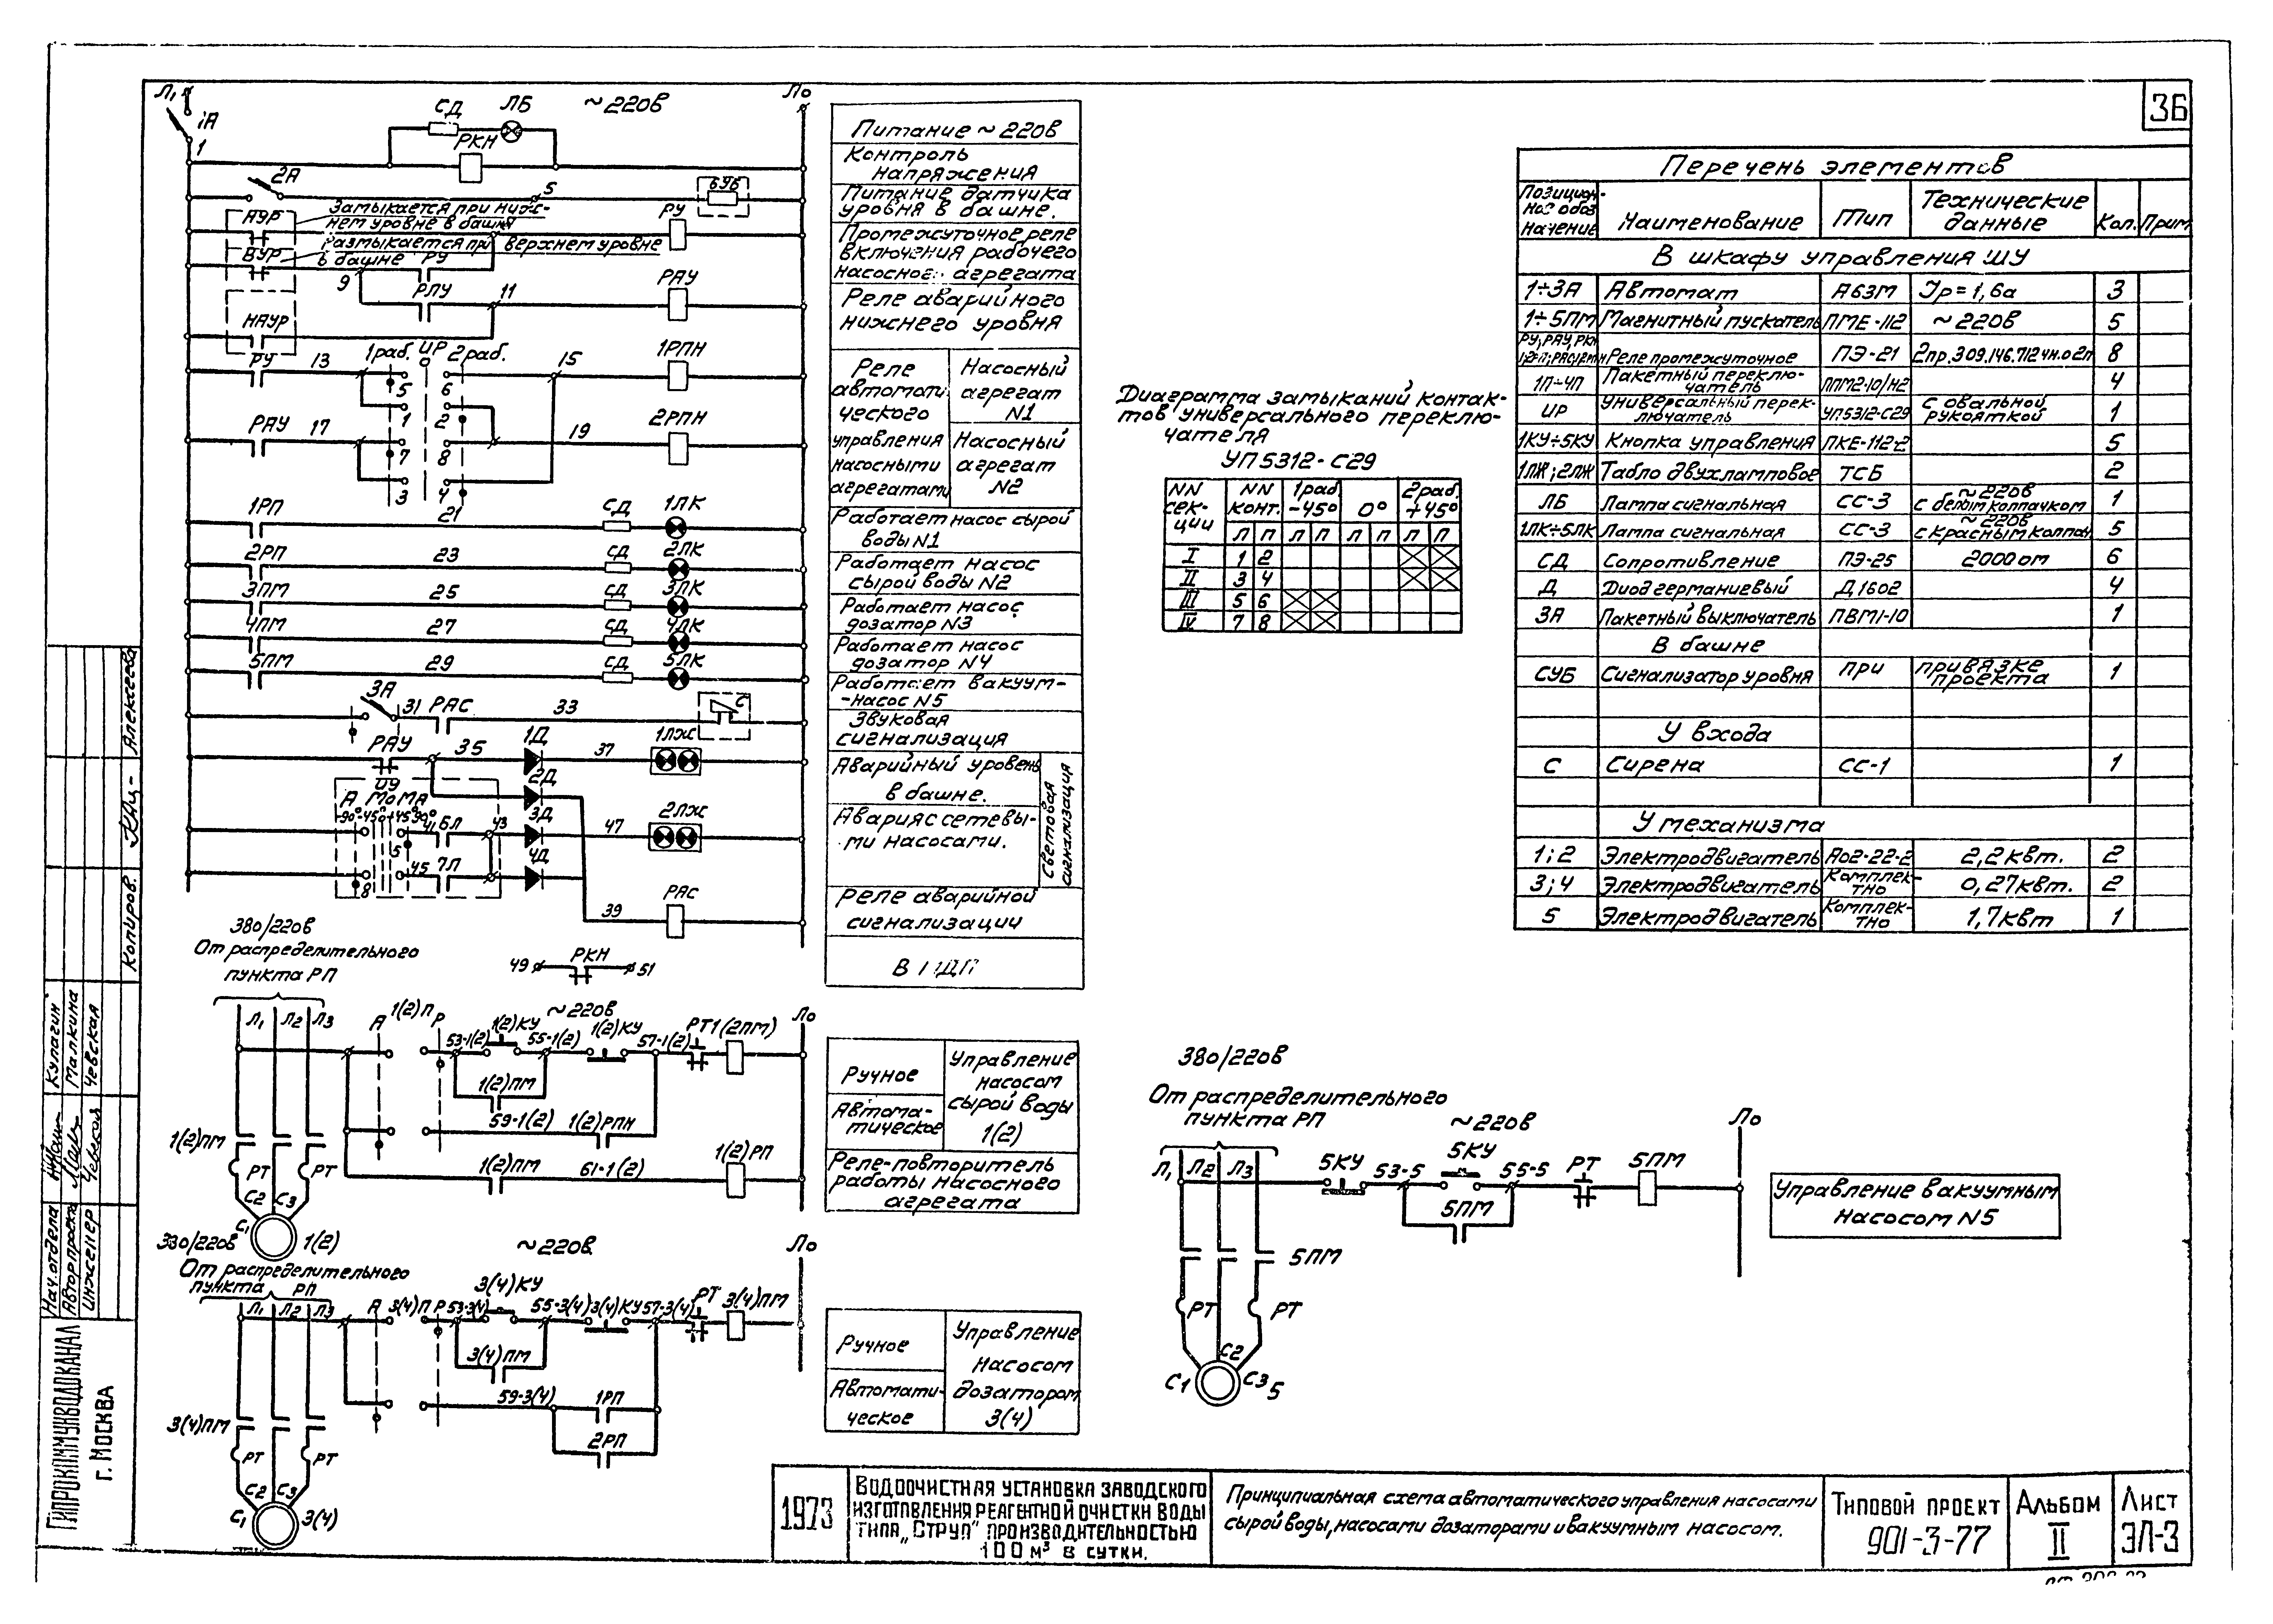 36
Л₁
1А
1
СД
ЛБ
~220В
Ло
РКН
2А
5
БУБ
АУР
Замыкается при ниж-
нем уровне в башн
РУ
Размыкается при верхнем уровне
в башне
ВУР
РУ
9
РЛУ
11
РАУ
НАУР
РУ
13
1раб.
ИР
0
2раб.
15
1РПН
5
6
1
2
РАУ
17
19
2РПН
7
8
3
4
1РП
21
СД
1ЛК
2РП
23
СД
2ЛК
3ПМ
25
СД
3ЛК
4ПМ
27
СД
4ЛК
5ПМ
29
СД
5ЛК
3А
31
РАС
33
С
РАУ
35
1Д
37
1ЛЖ
2Д
ИУ
А МоМА
-90°-45°0°+45°90°
41
6Л
43
3Д
47
2ЛЖ
5
45
7Л
4Д
8
39
РАС
49
РКН
51
Питание ~ 220В
Контроль
напряжения
Питание датчика
уровня в башне.
Промежуточное реле
включения рабочего
насосног. агрегата
Реле аварийного
нижнего уровня
Реле
автомати
ческого
управления
насосными
агрегатами
Насосный
агрегат
N1
Насосный
агрегат
N2
Работает насос сырой
воды N1
Работает насос
сырой воды N2
Работает насос
дозатор N3
Работает насос
дозатор N4
Работает вакуум-
-насос N5
Звуковая
сигнализация
Аварийный уровень
в башне.
Авария с сетевы-
ми насосами.
Световая
сигнализация
Реле аварийной
сигнализации
380/220В
От распределительного
пункта РП
Л₁
Л₂
Л3
А
1(2)П
Р
~220В
53-1(2)
1(2)КУ
55-1(2)
1(2)КУ
57-1(2)
РТ1(2ПМ)
Ло
1(2)ПМ
59-1(2)
1(2)РПН
1(2)ПМ
61-1(2)
1(2)РП
1(2)ПМ
РТ
РТ
С1
С2
С3
1(2)
Ручное
Автома-
тическое
Управление
насосом
сырой воды
1(2)
Реле-повторитель
работы насосного
агрегата
380/220В
От распределительного
пункта РП
~220В
Ло
Л₁
Л2
Л3
А
3(4)П
Р
53-3(4)
3(4)КУ
55-3(4)
3(4)КУ
57-3(4)
РТ
3(4)ПМ
3(4)ПМ
59-3(4)
1РП
2РП
3(4)ПМ
РТ
РТ
С1
С2
С3
3(4)
Ручное
Автомати-
ческое
Управление
насосом
дозатором
3(4)
Диаграмма замыканий контак-
тов универсального переклю-
чателя
УП5312-С29
NN
сек-
ции
NN
конт.
1раб.
-45°
0°
2раб.
+45°
Л П Л П Л П Л П
I 1 2
II 3 4
III 5 6
IV 7 8
380/220В
От распределительного
пункта РП
~220В
Ло
Л₁
Л2
Л3
5КУ
53-5
5КУ
55-5
РТ
5ПМ
5ПМ
5ПМ
РТ
РТ
С1
С2
С3
5
Управление вакуумным
насосом N5
Перечень элементов
Позицион-
ное обоз
начение
Наименование
Тип
Технические
данные
Кол.
Прим
В шкафу управления ШУ
1÷3А Автомат А63М Jр=1,6а 3
1÷5ПМ Магнитный пускатель ПМЕ-112 ~220В 5
РУ, РАУ, РКН
Реле промежуточное ПЭ-21 8
1П÷4П Пакетный переклю-
чатель ППМ2-10/Н2 4
ИР Универсальный перек-
лючатель УП5312-С29 с овальной
рукояткой 1
1КУ÷5КУ Кнопка управления ПКЕ-112-2 5
1ЛЖ;2ЛЖ Табло двухламповое ТСБ 2
ЛБ Лампа сигнальная СС-3 ~220В
с белым колпачком 1
1ЛК÷5ЛК Лампа сигнальная СС-3 ~220В
с красным колпач 5
СД Сопротивление ПЭ-25 2000ом 6
Д Диод германиевый Д1602 4
3А Пакетный выключатель ПВМ1-10 1
В башне
СУБ Сигнализатор уровня при привязке
проекта 1
У входа
С Сирена СС-1 1
У механизма
1;2 Электродвигатель Ао2-22-2 2,2квт. 2
3;4 Электродвигатель Комплек-
тно 0,27квт. 2
5 Электродвигатель Комплек-
тно 1,7квт 1
Копиров.
Алексеева
Нач. отдела
Автор проекта
Инженер
Кулагин
Малкина
Чевская
ГИПРОКОММУНВОДОКАНАЛ
г. МОСКВА
1973
ВОДООЧИСТНАЯ УСТАНОВКА ЗАВОДСКОГО
ИЗГОТОВЛЕНИЯ РЕАГЕНТНОЙ ОЧИСТКИ ВОДЫ
ТИПА „СТРУЯ" ПРОИЗВОДИТЕЛЬНОСТЬЮ
100 м³ в СУТКИ.
Принципиальная схема автоматического управления насосами
сырой воды, насосами дозаторами и вакуумным насосом.
ТИПОВОЙ ПРОЕКТ
901-3-77
АЛЬБОМ
II
ЛИСТ
ЭЛ-3